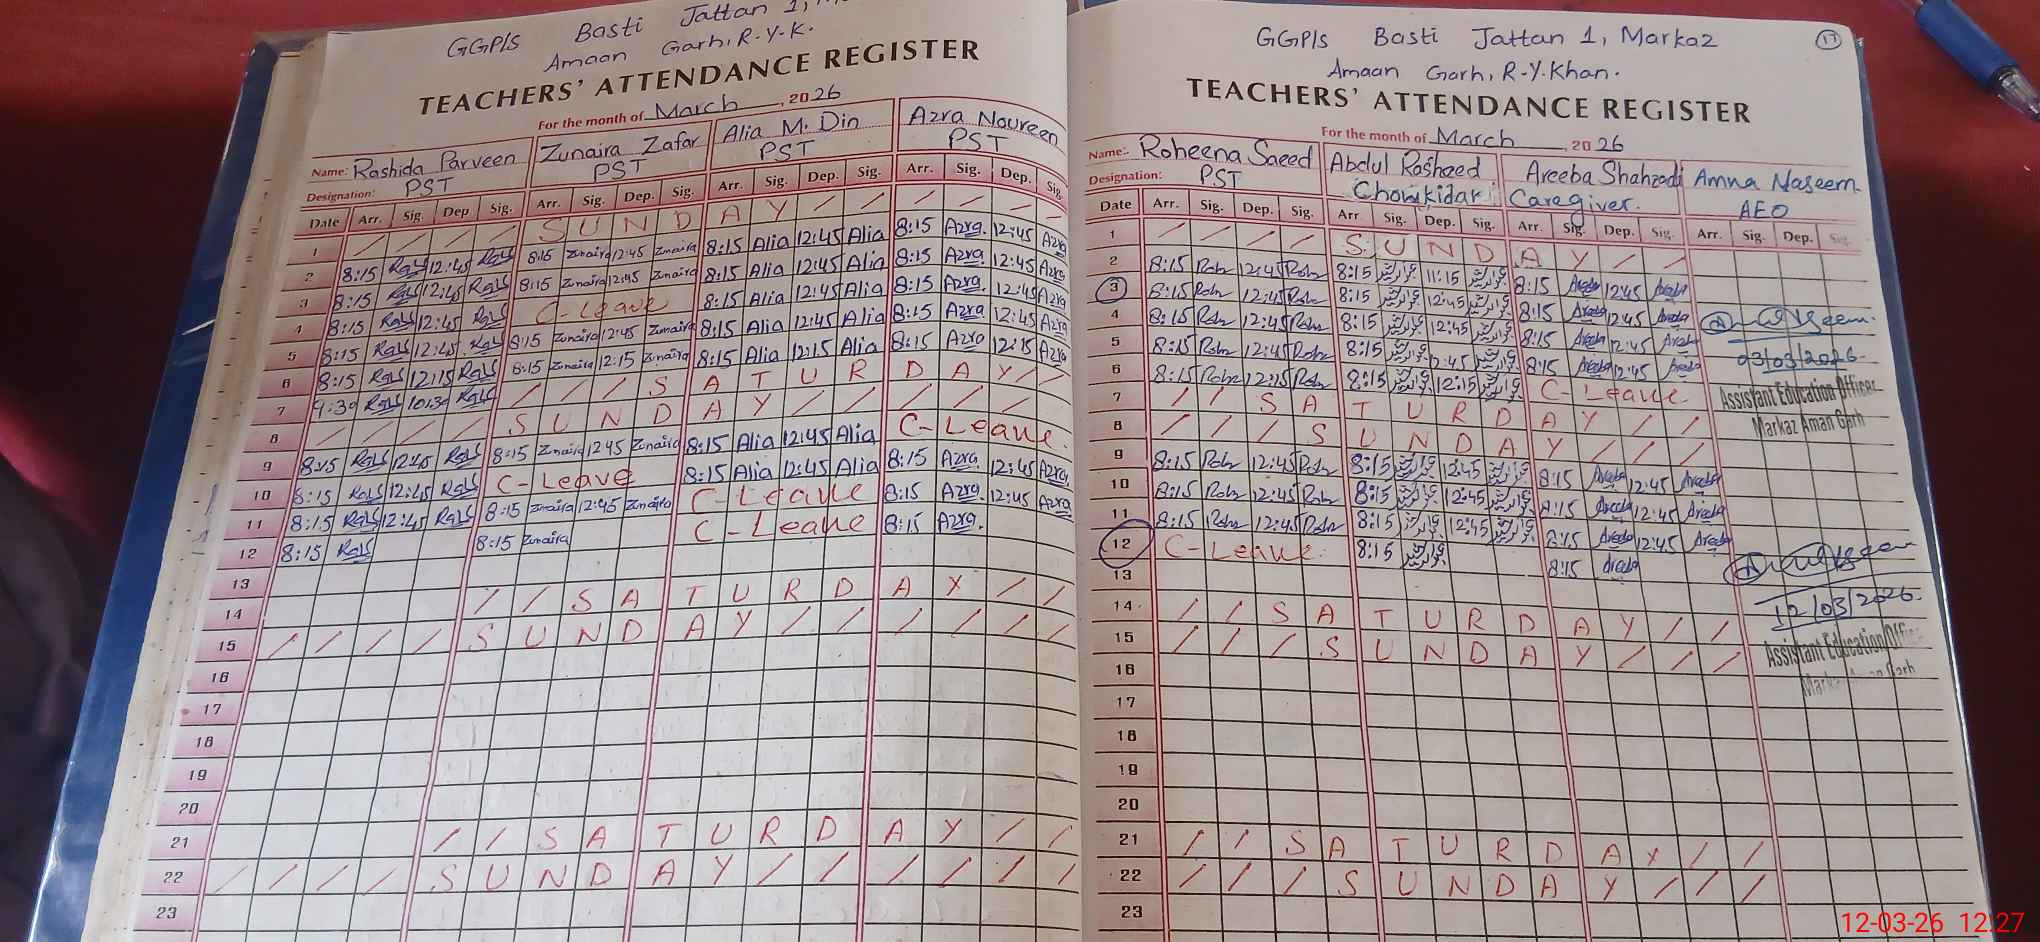 GGP/S Basti Jattan 1,
Amaan Garh, R.Y.K.
TEACHERS' ATTENDANCE REGISTER
For the month of March, 2026
Name: Rashida Parveen Zunaira Zafar Alia M. Din Azra Noureen
Designation: PST PST PST PST
Date Arr. Sig. Dep Sig. Arr. Sig. Dep. Sig. Arr. Sig. Dep. Sig. Arr. Sig. Dep. Sig.
1 / / / / S U N D A Y / / / / / /
2 8:15 12:45 8:15 Zunaira 12:45 Zunaira 8:15 Alia 12:45 Alia 8:15 Azra. 12:45 Azra
3 8:15 12:45 8:15 Zunaira 12:45 Zunaira 8:15 Alia 12:45 Alia 8:15 Azra. 12:45 Azra
4 8:15 12:45 C-Leave 8:15 Alia 12:45 Alia 8:15 Azra. 12:45 Azra
5 8:15 12:45 8:15 Zunaira 12:45 Zunaira 8:15 Alia 12:45 Alia 8:15 Azra 12:45 Azra
6 8:15 12:15 8:15 Zunaira 12:15 Zunaira 8:15 Alia 12:15 Alia 8:15 Azra 12:15 Azra
7 9:30 10:30 / / / S A T U R D A Y / /
8 / / / / S U N D A Y / / / / / /
9 8:15 12:45 8:15 Zunaira 12:45 Zunaira 8:15 Alia 12:45 Alia C-Leave.
10 8:15 12:45 C-Leave 8:15 Alia 12:45 Alia 8:15 Azra. 12:45 Azra
11 8:15 12:45 8:15 Zunaira 12:45 Zunaira C-Leave 8:15 Azra. 12:45 Azra
12 8:15 8:15 Zunaira C-Leave 8:15 Azra.
13
14 / / S A T U R D A Y / /
15 / / / / S U N D A Y / / / / / /
16
17
18
19
20
21 / / S A T U R D A Y / /
22 / / / / S U N D A Y / / / / / /
23
17
GGP/S Basti Jattan 1, Markaz
Amaan Garh, R.Y.Khan.
TEACHERS' ATTENDANCE REGISTER
For the month of March, 2026
Name: Roheena Saeed Abdul Rasheed Areeba Shahzadi Amna Naseem
Designation: PST Chowkidar Caregiver. AEO
Date Arr. Sig. Dep. Sig. Arr Sig. Dep. Sig. Arr. Sig. Dep. Sig. Arr. Sig. Dep. Sig.
1 / / / / S U N D A Y / /
2 8:15 12:45 8:15 11:15 8:15 Areeba 12:45 Areeba
3 8:15 12:45 8:15 12:45 8:15 Areeba 12:45 Areeba
4 8:15 12:45 8:15 12:45 8:15 Areeba 12:45 Areeba
5 8:15 12:45 8:15 12:45 8:15 Areeba 12:45 Areeba
03/03/2026
6 8:15 12:15 8:15 12:15 C-Leave
Assistant Education Officer
Markaz Aman Garh
7 / / S A T U R D A Y / /
8 / / / S U N D A Y / / /
9 8:15 12:45 8:15 12:45 8:15 Areeba 12:45 Areeba
10 8:15 12:45 8:15 12:45 8:15 Areeba 12:45 Areeba
11 8:15 12:45 8:15 12:45 8:15 Areeba 12:45 Areeba
12 C-Leave. 8:15 8:15 Areeba
13
12/03/2026.
Assistant Education Office
14 / / S A T U R D A Y / /
15 / / / S U N D A Y / / /
16
17
18
19
20
21 / / S A T U R D A Y / /
22 / / / S U N D A Y / / /
23
12-03-26 12:27